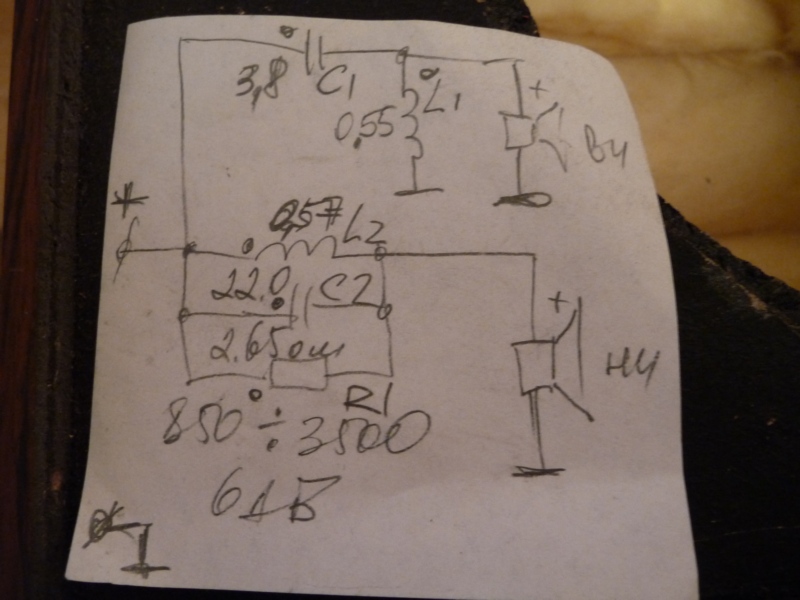 3,8 C1
+
0,55 L1
ВЧ
*
0,57 L2
22.0 C2
+
2.65 ом
НЧ
R1
850 ÷ 3500
6 дБ